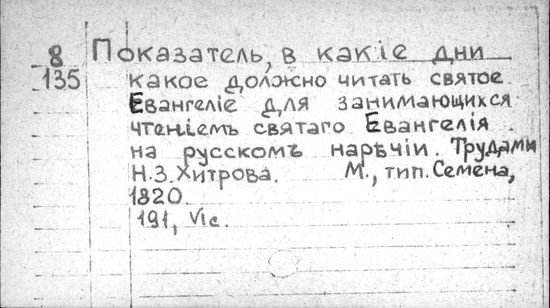 8 Показатель, в какіе дни
135 какое должно читать святое
Евангеліе для занимающихся
чтеніемъ святаго Евангелія
на русскомъ нарѣчіи. Трудами
Н.З.Хитрова. М., тип. Семена,
1820.
191, VIc.